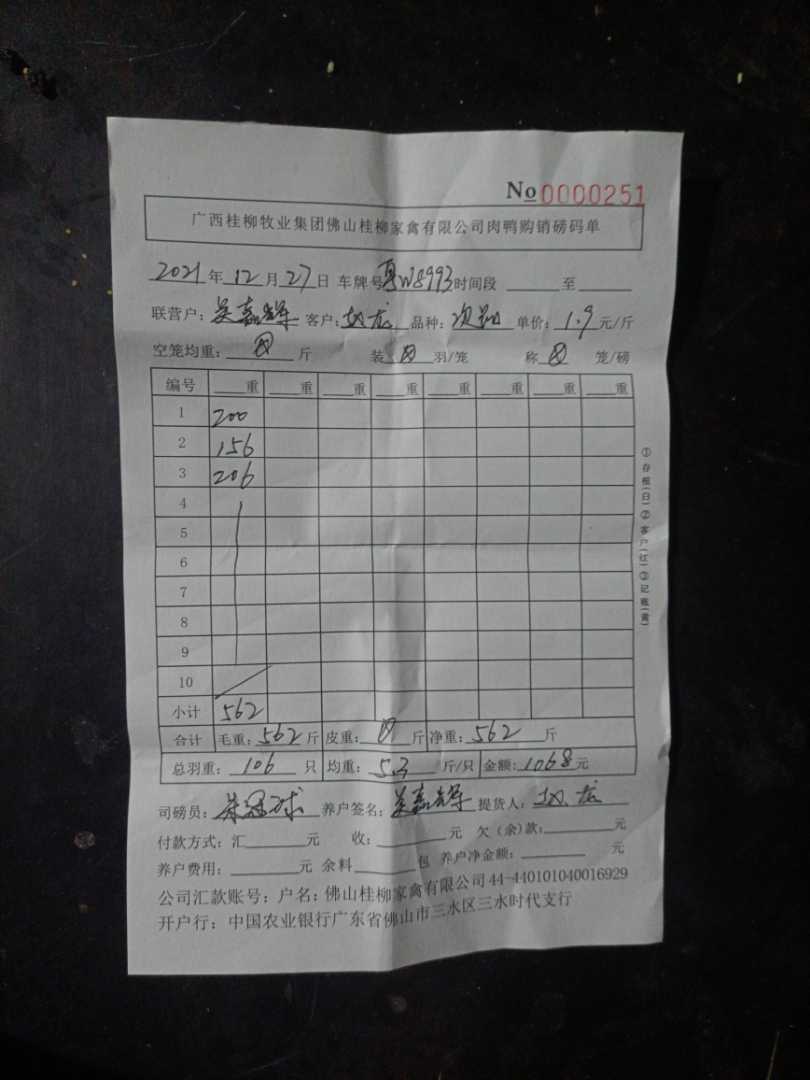 №0000251
广西桂柳牧业集团佛山桂柳家禽有限公司肉鸭购销磅码单
2021年12月27日 车牌号粤W8993时间段 至
联营户：吴嘉辉 客户：赵龙 品种：次鸭 单价：1.9元/斤
空笼均重： 斤 装 羽/笼 称 笼/磅
编号 重 重 重 重 重 重 重 重
1 200
2 156
3 206
4
5
6
7
8
9
10
小计 562
合计 毛重：562斤 皮重： 斤 净重：562 斤
总羽重：106 只 均重：5.3 斤/只 金额：1068元
司磅员： 养户签名：吴嘉辉 提货人：赵龙
付款方式：汇 元 收： 元 欠（余）款： 元
养户费用： 元 余料 包 养户净金额： 元
公司汇款账号：户名：佛山桂柳家禽有限公司44-440101040016929
开户行：中国农业银行广东省佛山市三水区三水时代支行
①存根(白)②客户(红)③记账(黄)